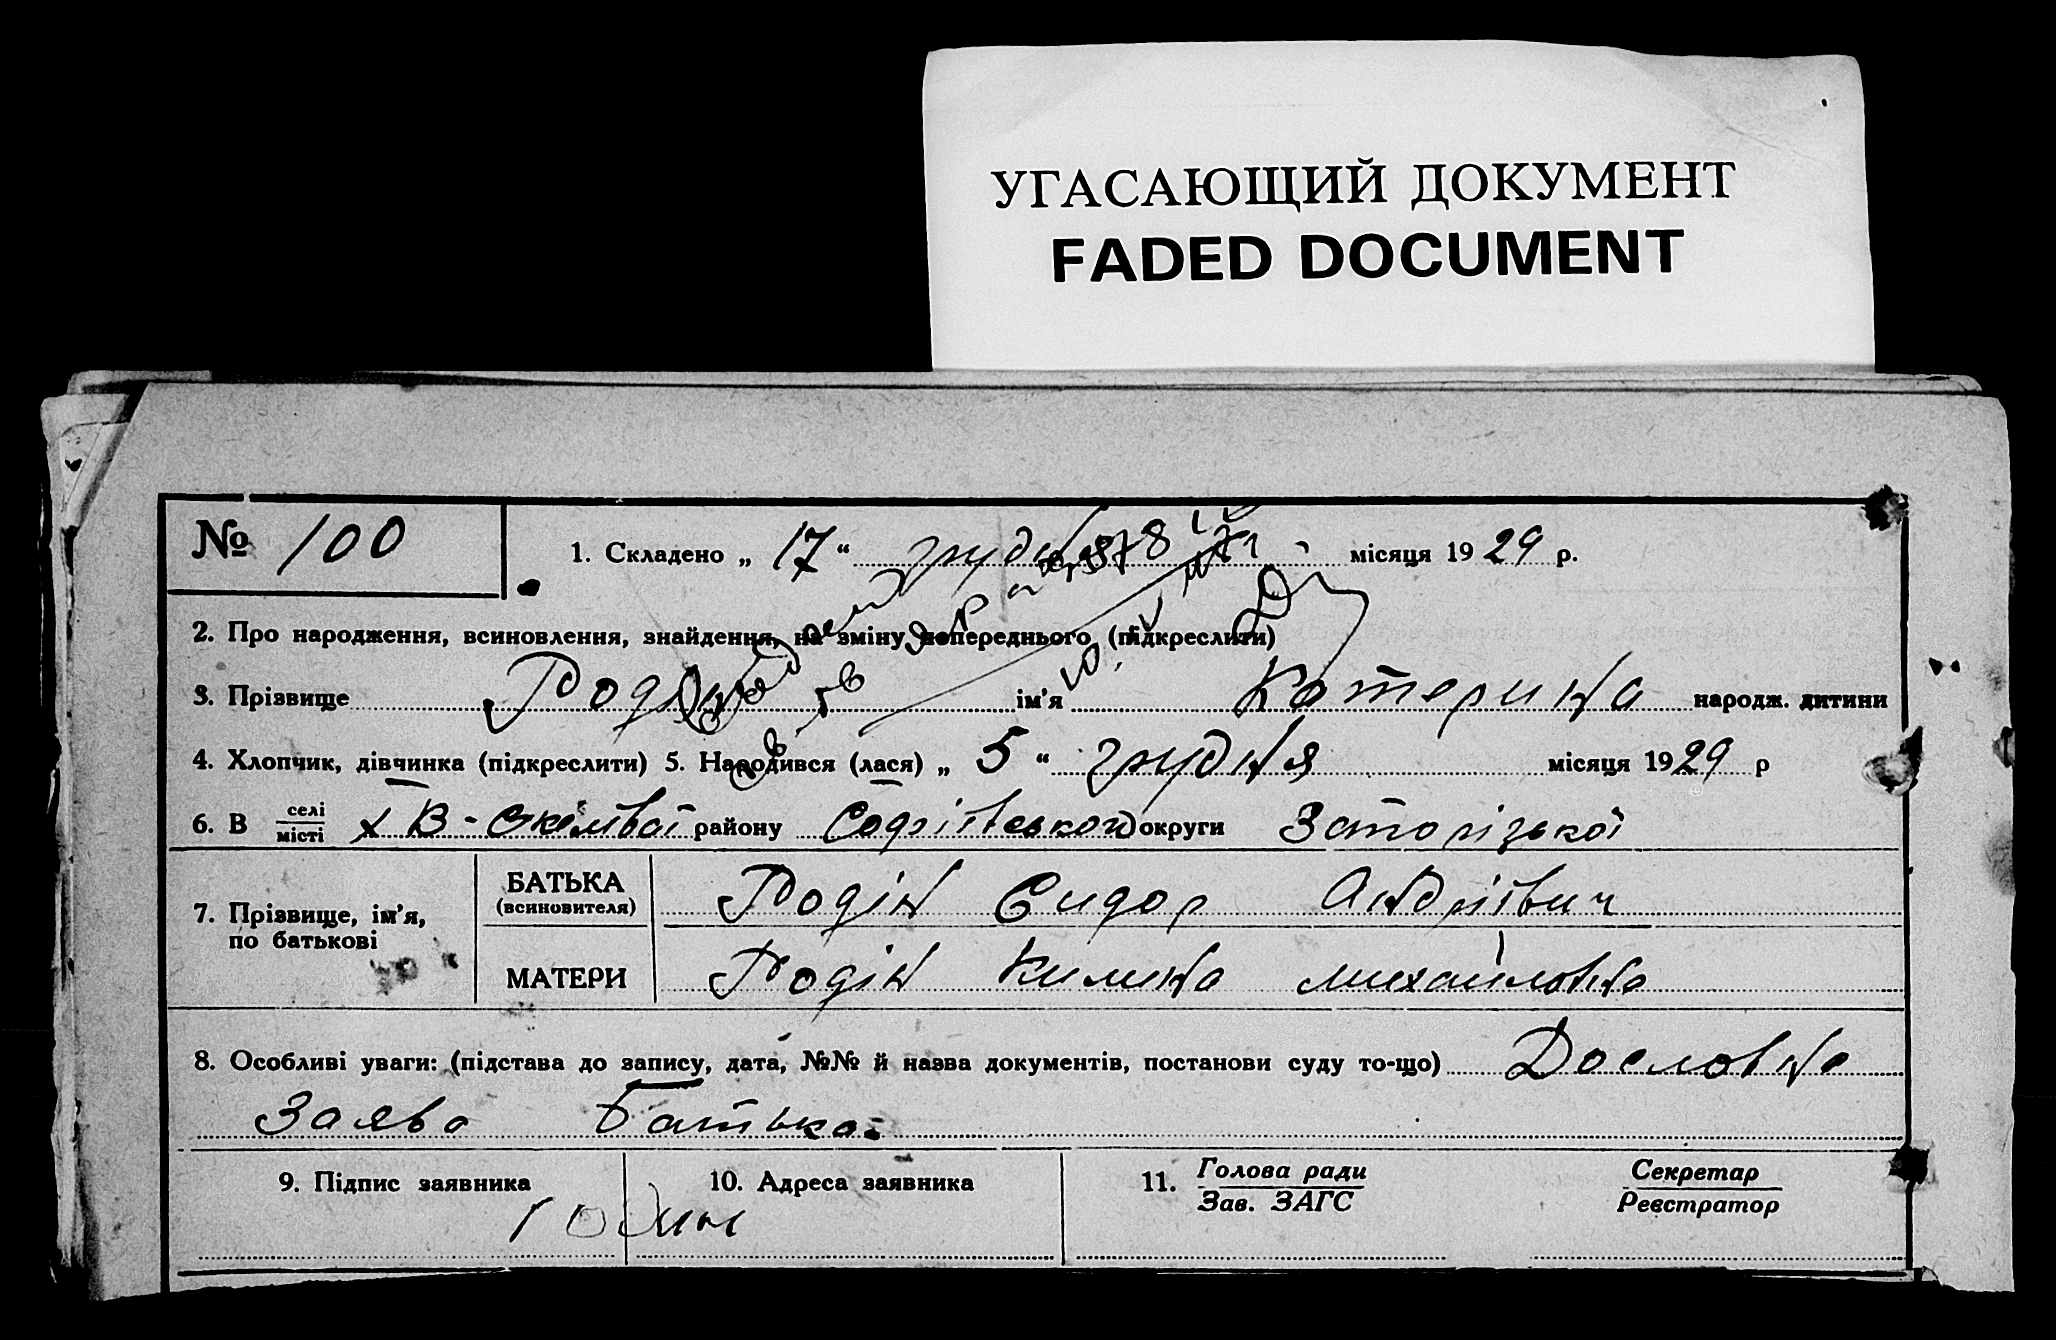 УГАСАЮЩИЙ ДОКУМЕНТ
FADED DOCUMENT
№ 100
1. Складено „ 17 “ грудня місяця 1929 р.
2. Про народження, всиновлення, знайдення, на зміну попереднього (підкреслити)
3. Прізвище Родін ім'я Катерина народж. дитини
4. Хлопчик, дівчинка (підкреслити) 5. Народився (лася) „ 5 “ грудня місяця 1929 р
6. В селі/місті району округи Запорізької
7. Прізвище, ім'я, по батькові
БАТЬКА (всиновителя) Родін Сидор Андрієвич
МАТЕРИ Родін Килина Михайловна
8. Особливі уваги: (підстава до запису, дата, №№ й назва документів, постанови суду то-що) Дословна
Заява Батька
9. Підпис заявника 10. Адреса заявника 11. Голова ради/Зав. ЗАГС Секретар/Реєстратор
Годин